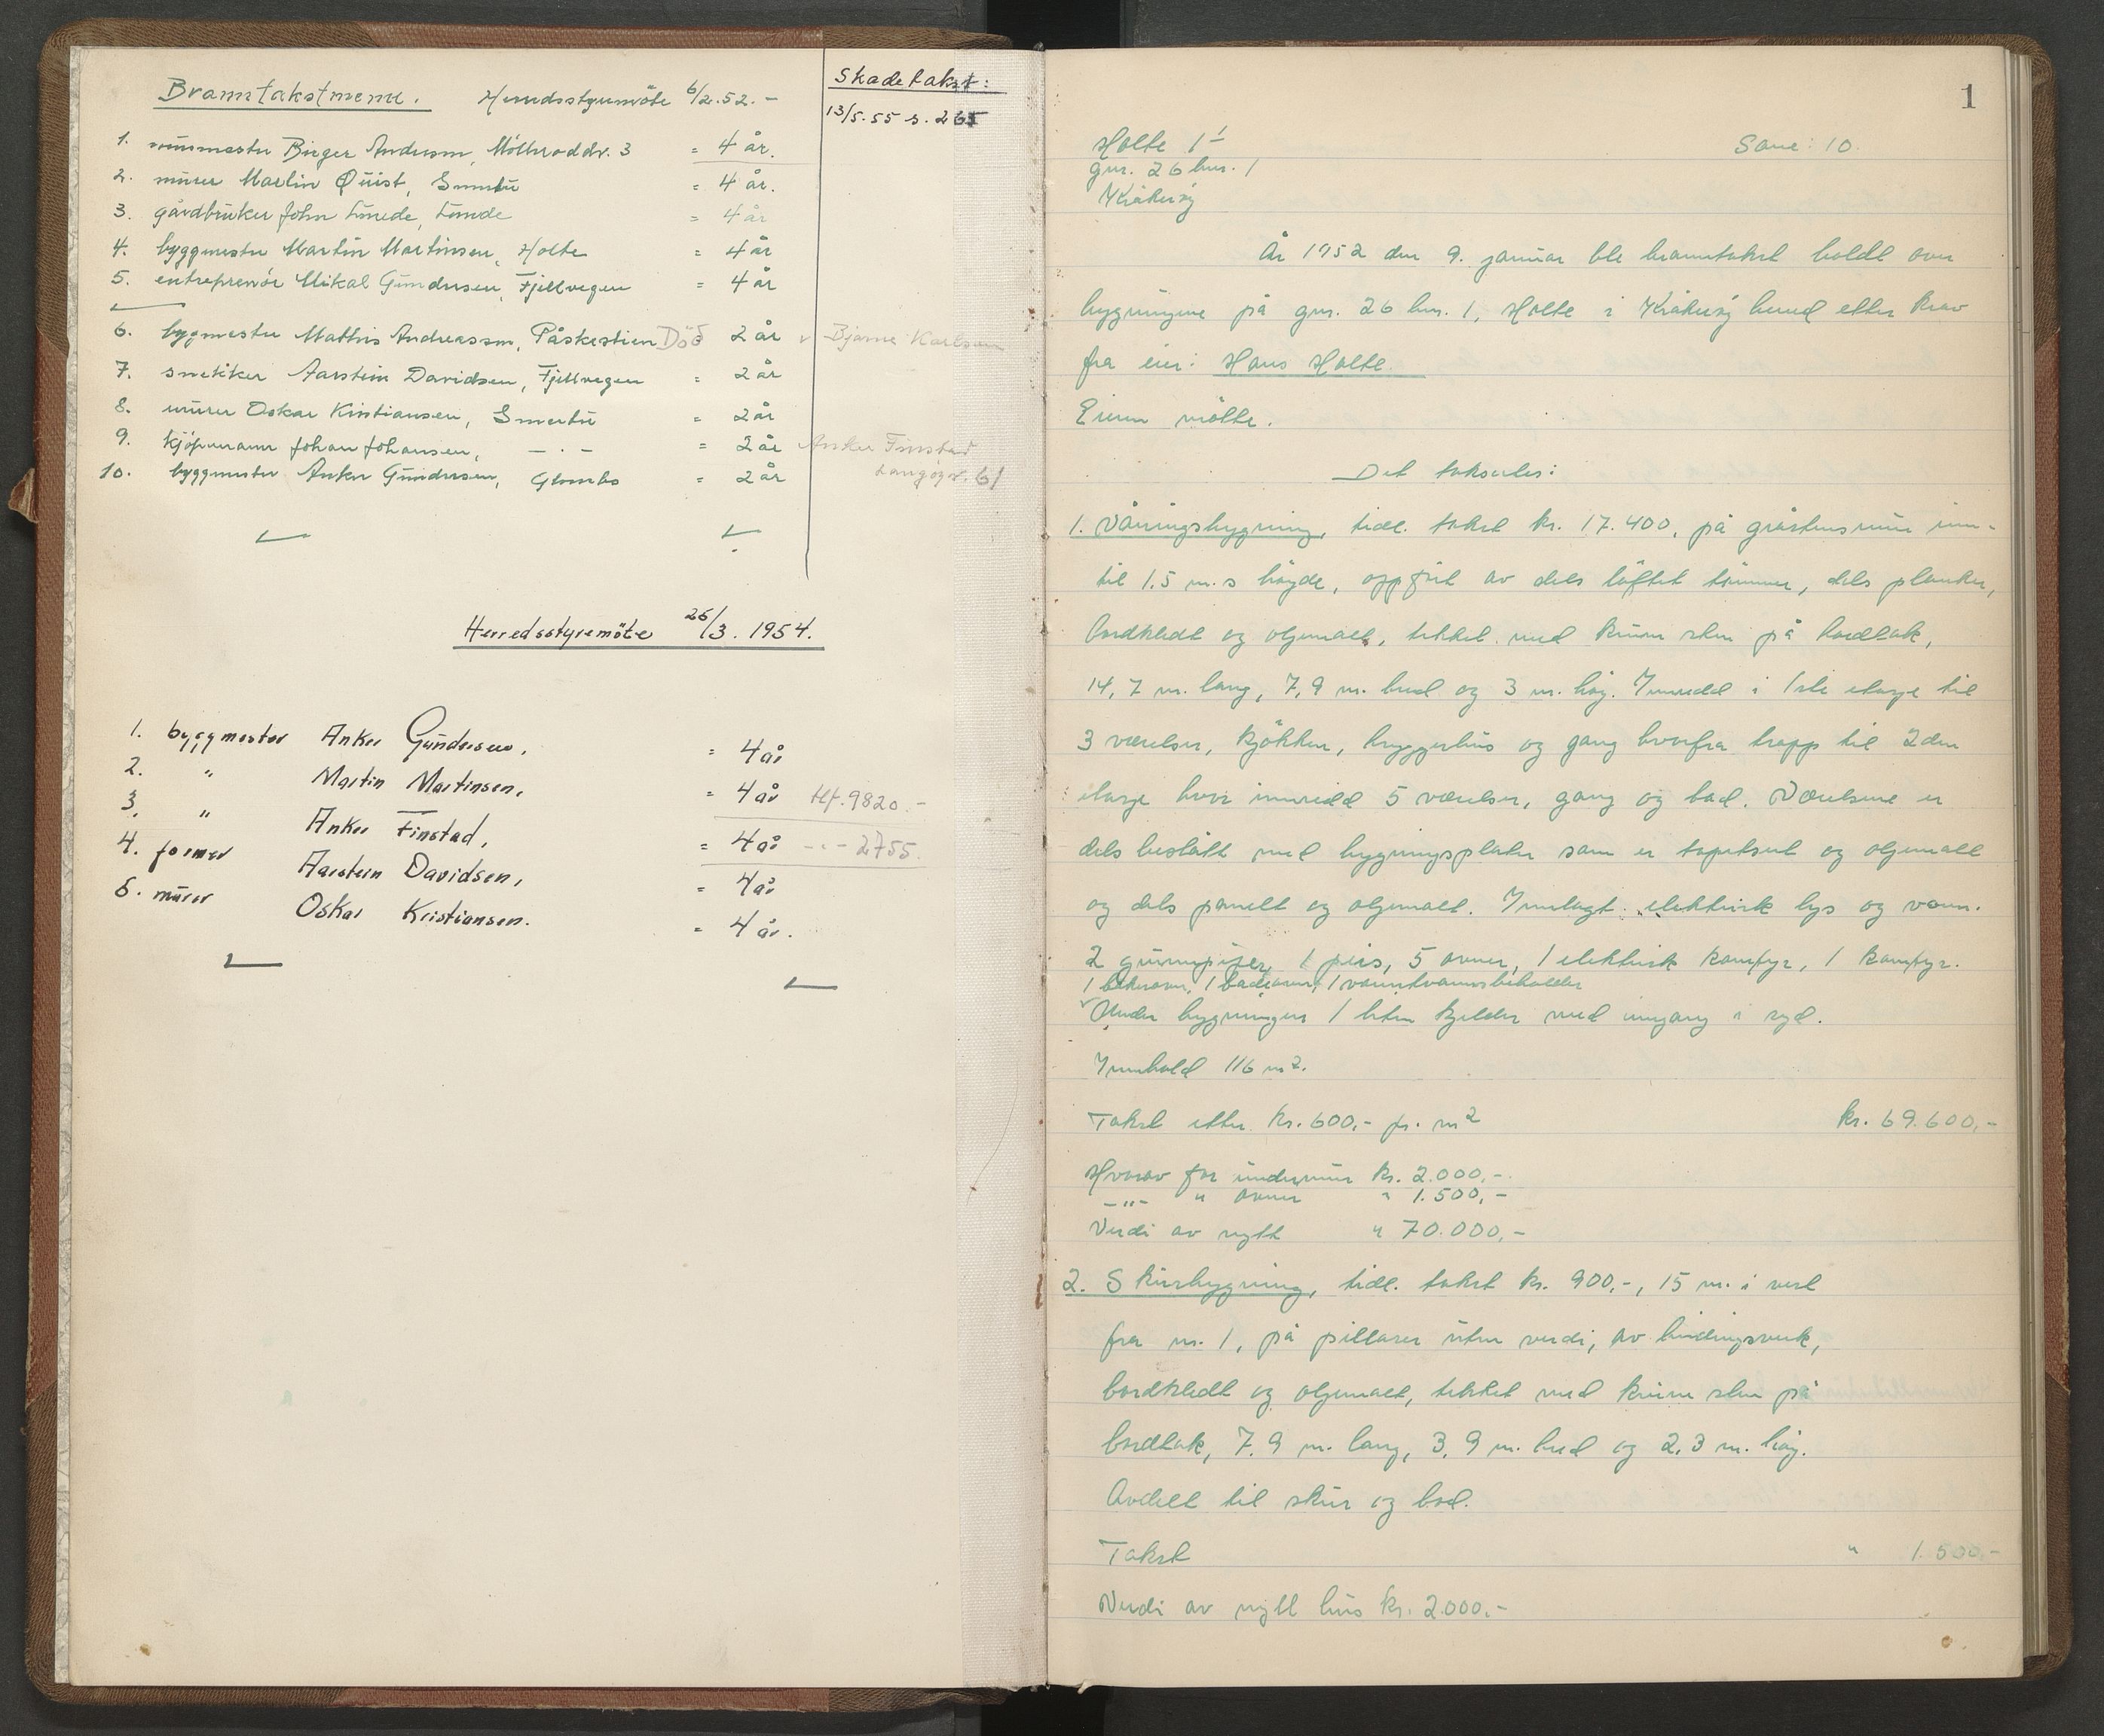 Branntakstmenn. Herredsstyremöte 6/2.52.-
Skadetakst:
13/5.55 s. 265
1. murmester Birger Andersen, 3 = 4 år.
2. murer Martin Quist, Smertu = 4 år.
3. gårdbruker John Lunde, Lunde = 4 år
4. byggmester Martin Martinsen, Holte = 4 år
5. entreprenör Mikal Gundersen, Fjellvegen = 4 år
6. bygmester Mathis Andreassen, Påskestien Död 2 år v Bjarne Karlsen
7. snekker Aarstein Davidsen, Fjellvegen = 2 år
8. murer Oskar Kristiansen, Smertu = 2 år
9. kjöpmann Johan Johansen, — · — = 2 år Anker Finstad
10. byggmester Anker Gundersen, Glombo = 2 år Langögv. 61
Herredsstyremöte 26/3. 1954.
1. byggmester Anker Gundersen, = 4 år
2. " Martin Martinsen, = 4 år tlf. 9820.-
3. " Anker Finstad, = 4 år -·- 2755.
4. former Aarstein Davidsen, = 4 år
5. murer Oskar Kristiansen. = 4 år.
1
Holte 1 Sone: 10.
gnr. 26 bnr. 1
Kråkeröy
År 1952 den 9. januar ble branntakst holdt over
bygningene på gnr. 26 bnr. 1, Holte i Kråkeröy herred etter krav
fra eier: Hans Holte.
Eieren mötte.
Det takseres:
1. Våningsbygning, tidl. takst kr. 17.400, på gråstensmur inn-
til 1.5 m.s höyde, oppfört av dels löftet tömmer, dels planker,
bordkledt og oljemalt, tekket med krum sten på bordtak,
14,7 m. lang, 7,9 m. bred og 3 m. höy. Innredd i 1ste etasje til
3 værelser, kjökken, bryggerhus og gang hvorfra trapp til 2den
etasje hvor innredd 5 værelser, gang og bad. Værelsene er
dels beslått med bygningsplater som er tapetsert og oljemalt
og dels panelt og oljemalt. Innlagt elektrisk lys og vann.
2 grunnpiper, 1 peis, 5 ovner, 1 elektrisk komfyr, 1 komfyr.
1 bakerovn, 1 badeovn, 1 varmtvannsbeholder
Under bygningen 1 liten kjelder med inngang i syd.
Innhold 116 m2.
Takst etter kr. 600,- pr. m2 kr. 69.600,-
Hvorav for undermur kr. 2.000,-
-"- " ovner " 1.500,-
Verdi av nytt " 70.000,-
2. Skurbygning, tidl. takst kr. 900,-, 15 m. i vest
fra nr. 1, på pillarer uten verdi, av bindingsverk,
bordkledt og oljemalt, tekket med krum sten på
bordtak, 7,9 m. lang, 3,9 m. bred og 2,3 m. höy.
Avdelt til skur og bod.
Takst " 1.500,-
Verdi av nytt hus kr. 2.000,-